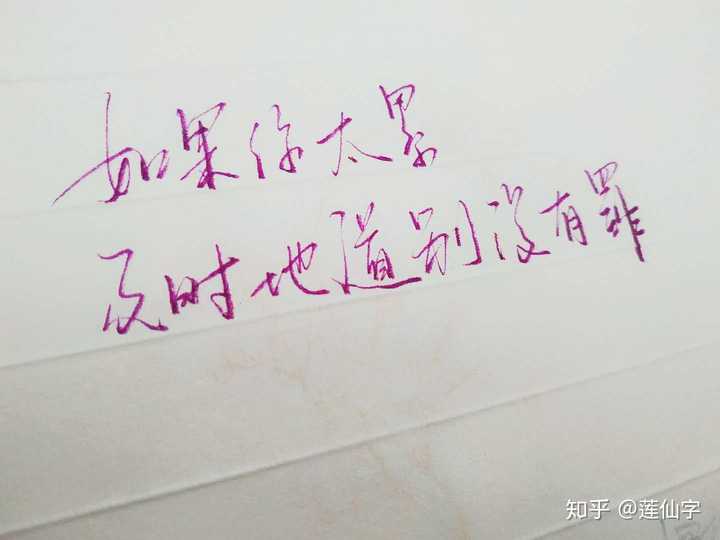 如果你太累
及时地道别没有罪
知乎 @莲仙字